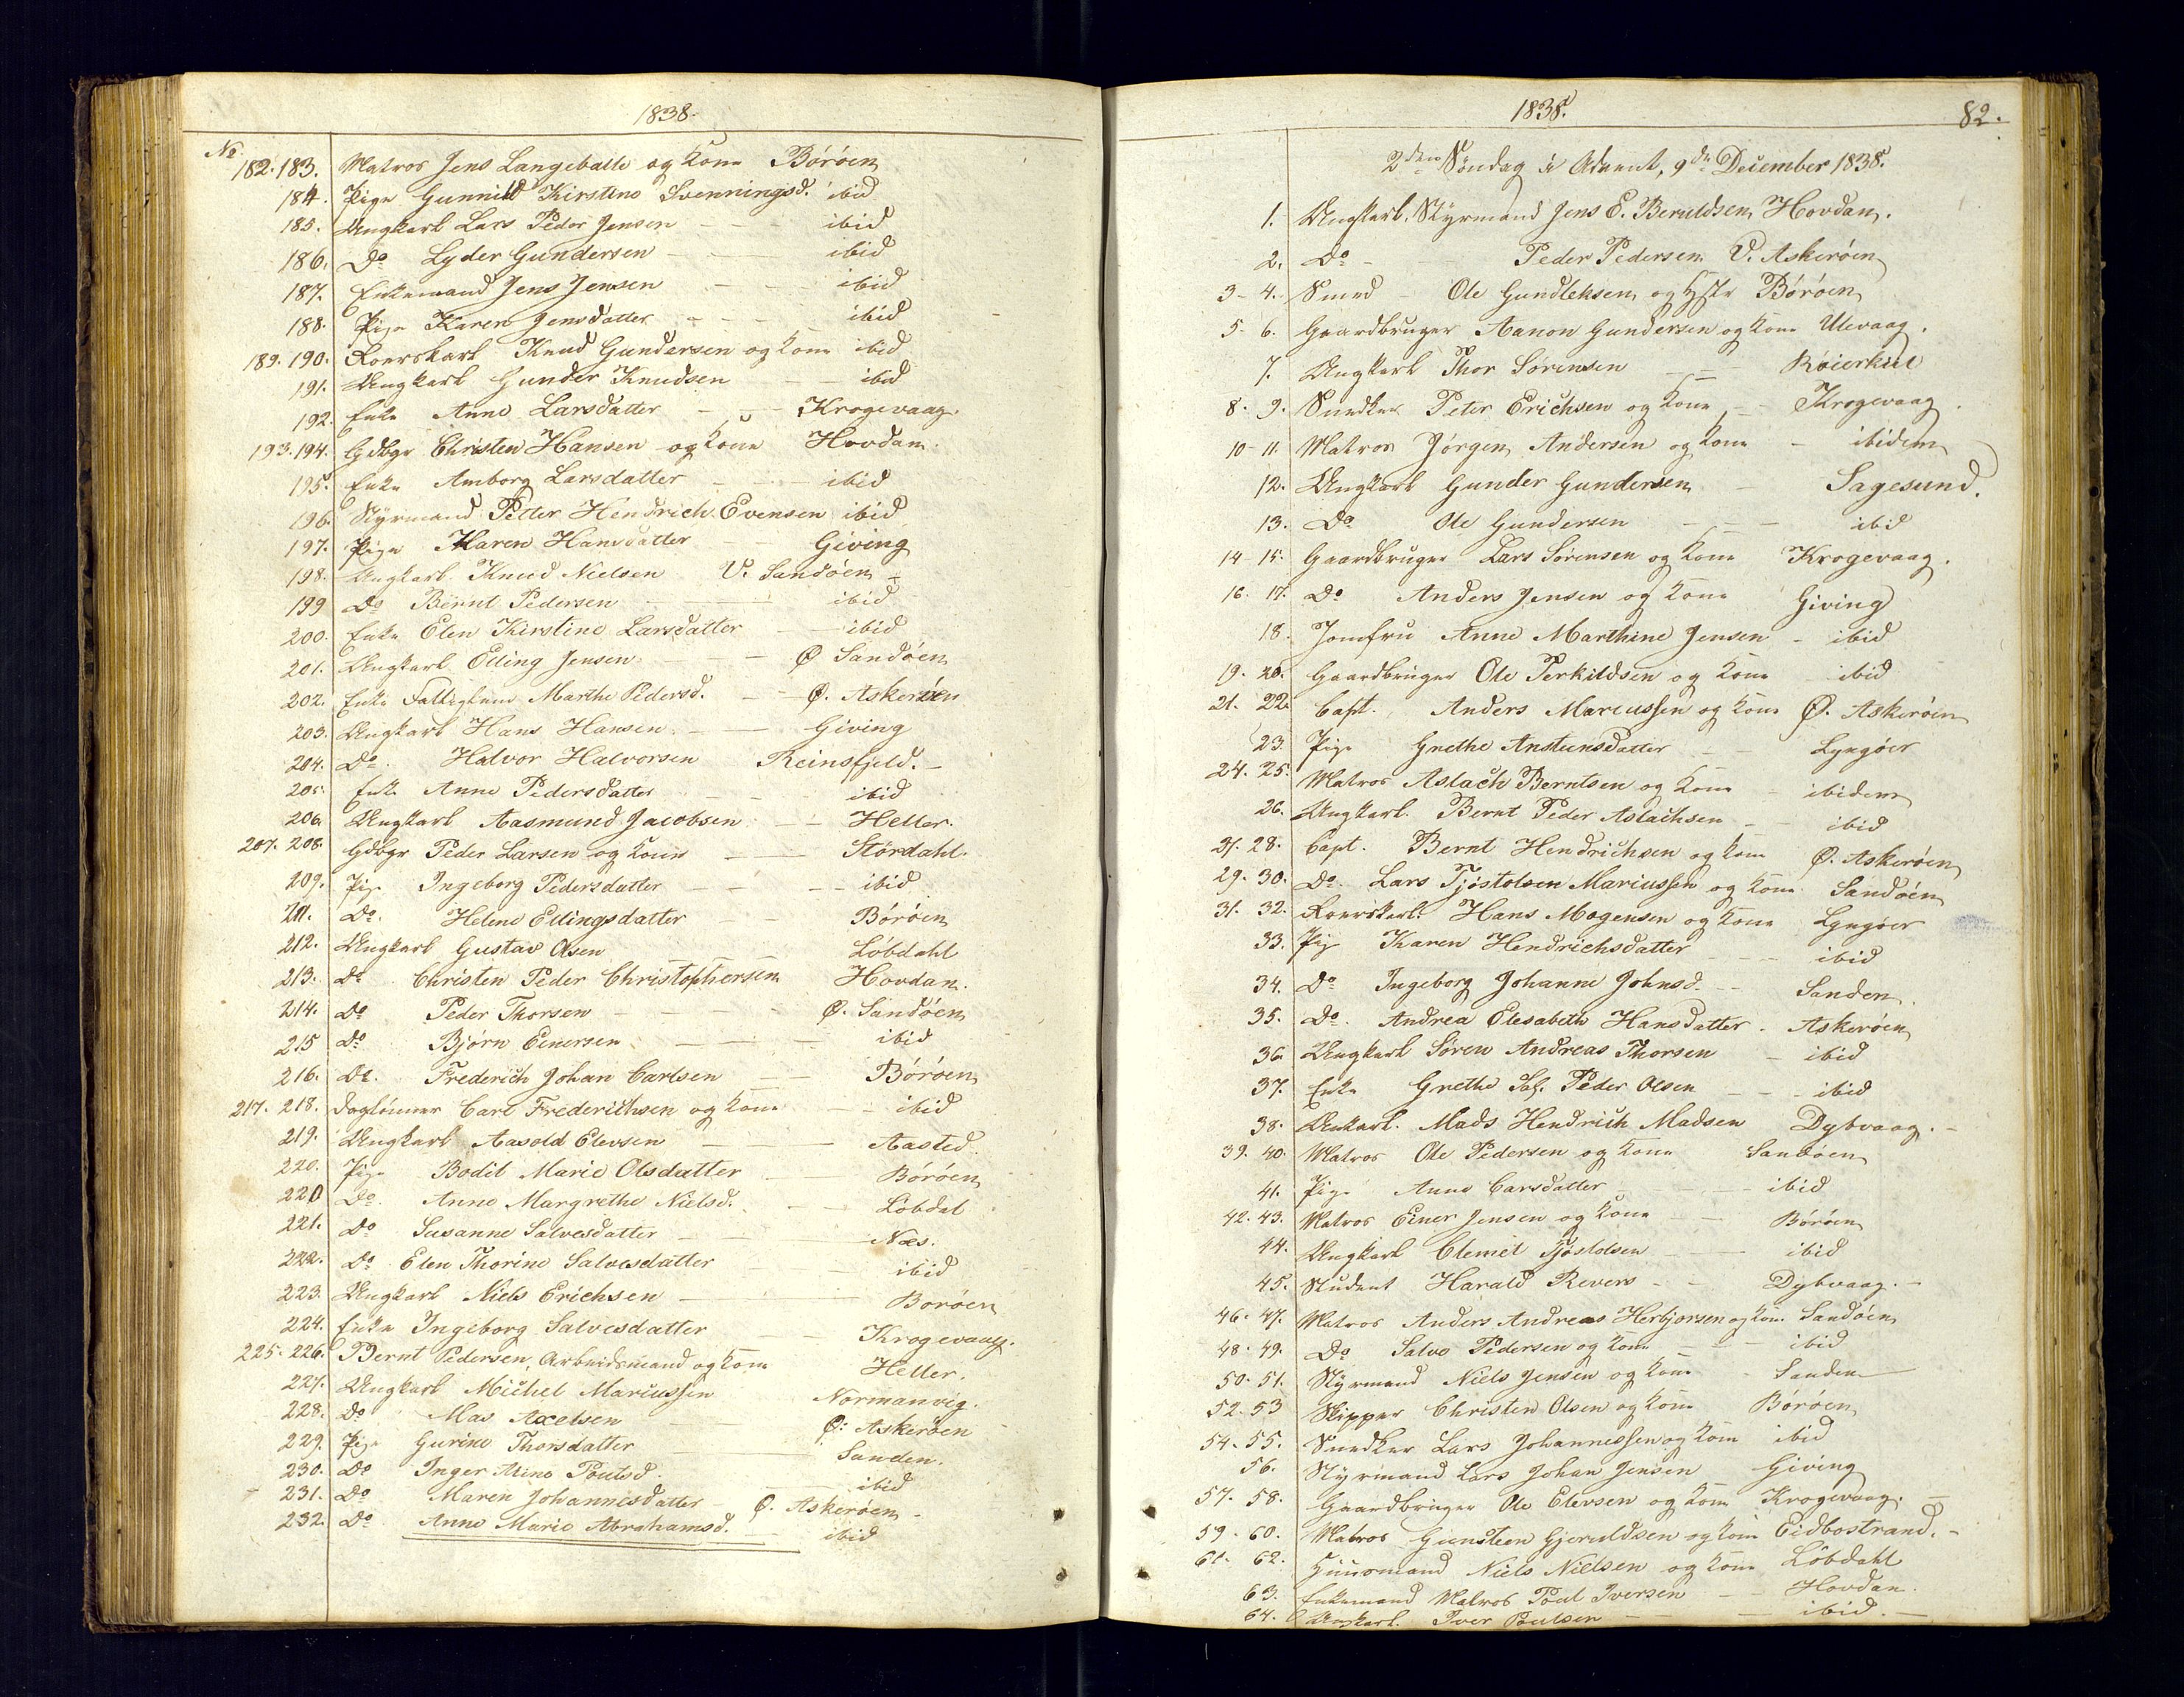 1838.
No.
182. 183. Matros Jens Langeballe og Kone Böröen
184. Pige Gunnild Kirstine Svenningsd. ibid
185. Ungkarl Lars Peder Jensen - - - ibid
186. Do Lyder Gundersen - - ibid
187. Enkemand Jens Jensen - - ibid
188. Pige Karen Jensdatter - - - ibid
189. 190. Roerskarl Knud Gundersen og Kone ibid
191. Ungkarl Gunder Knudsen - - ibid
192. Enke Anne Larsdatter - - Krogevaag.
193. 194. Gdbgr Christen Hansen og Kone Hovdan.
195. Enke Amborg Larsdatter - - ibid
196. Styrmand Petter Hendrich Evensen ibid
197. Pige Maren Hansdatter - - Giving
198. Ungkarl Knud Nielsen V. Sandöen -
199 Do Bernt Pedersen - - ibid
200. Enke Elen Kirstine Larsdatter - ibid
201. Ungkarl Elling Jensen - - - Ø Sandöen
202. Enke Fattiglem Marthe Pedersd. - - Ø. Askeröen
203. Ungkarl Hans Hansen - - Giving
204. Do. Halvor Halvorsen Reinsfjeld. -
205. Enke Anne Pedersdatter - - ibid
206. Ungkarl Aasmund Jacobsen - - Heller.
207. 208. Gdbgr Peder Larsen og Kone - Stördahl.
209. Pige Ingeborg Pedersdatter - - - ibid
211. Do. Helene Ellingsdatter - - Böröen
212. Ungkarl Gustav Olsen - - Löbdahl
213. Do. Christen Peder Christophersen Hovdan.
214. Do Peder Thorsen - - - - Ø. Sandöen
215 Do Bjørn Einersen - - - ibid
216. Do. Frederich Johan Carlsen - Böröen
217. 218. Daglönner Carl Frederichsen og Kone - - ibid
219. Ungkarl Aasold Elevsen - - Aasted.
220. Pige Bodil Marie Olsdatter - Böröen
220 Do. Anne Margrethe Nielsd. - - Löbdal
221. Do Susanne Salvesdatter - - Næs.
222. Do Elen Thorine Salvesdatter - - ibid
223. Ungkarl Niels Erichsen - - Boröen
224. Enke Ingeborg Salvesdatter - - Krogevaag.
225. 226. Bernt Pedersen, Arbeidsmand og Kone Heller.
227. Ungkarl Michel Mariussen Normanvig.
228. Do Mas Axelsen - - Ø. Askeröen
229. Pige Gurine Thorsdatter Sanden.
230. Do Inger Aline Poulsd. - ibid
231. Do Maren Johannesdatter - Ø. Askeröen -
232. Do Anne Marie Abrahamsd. - ibid
1838.
82.
2den Söndag i Advent, 9de December 1838.
1. Ungkarl. Styrmand Jens E. Beruldsen Hovdan.
2. Do - - Peder Pedersen V. Askeröen
3 - 4. Smed - Ole Gundleksen og Hstr Böröen
5 - 6. Gaardbruger Aanon Gundersen og Kone Ulevaag.
7. Ungkarl Thor Sörensen - - - Röierkiil
8 - 9. Snedker Peter Erichsen og Kone - Krogevaag.
10 - 11. Matros Jörgen Andersen og Kone - ibidem
12. Ungkarl Gunder Gundersen - Sagesund.
13. Do Ole Gundersen - - - ibid
14 - 15. Gaardbruger Lars Sörensen og Kone Krogevaag.
16. 17. Do Anders Jensen og Kone Giving
18. Jomfru Anne Marthine Jensen - ibid
19. 20. Gaardbruger Ole Terkildsen og Kone ibid
21. 22. Capt. Anders Mareussen og Kone Ø. Askeröen
23. Pige Grethe Anstensdatter - - Lyngöer
24. 25. Matros Aslach Berntsen og Kone - ibidem
26. Ungkarl. Bernt Peder Aslachsen - - ibid
27. 28. Capt. Bernt Hendrichsen og Kone Ø. Askeröen
29. 30. Do. Lars Tjöstolsen Mariussen og Kone Sandöen
31. 32. Roerskarl. Hans Mogensen og Kone Lyngöer
33. Pige Karen Hendrichsdatter - - - ibid
34. Do Ingeborg Johanne Johnsd. - - Sanden.
35. Do. Andrea Elesabeth Hansdatter. Askeröen
36. Ungkarl Sören Andreas Thorsen - ibid
37. Enke Grethe Sal. Peder Olsen - - - ibid
38. Unkarl. Mads Hendrich Madsen Dybvaag. -
39. 40. Matros Ole Pedersen og Kone Sandöen
41. Pige Anne Carsdatter - - - ibid
42. 43. Matros Einer Jensen og Kone - - Böröen
44. Ungkarl Clemet Tjöstolsen - - ibid
45. Student Harald Revers - - Dybvaag. -
46. 47. Matros Anders Andreas Herbjorsen og Kone Sandöen
48. 49. Do Salve Pedersen og Kone - - ibid
50. 51. Styrmand Niels Jensen og Kone - Sanden
52. 53 Skipper Christen Olsen og Kone Böröen
54. 55. Snedker Lars Johannessen og Kone ibid
56. Styrmand Lars Johan Jensen Giving
57. 58. Gaardbruger Ole Elevsen og Kone Krogevaag. -
59. 60. Matros Gunsteen Gjeruldsen og Kone Eidbostrand. -
61. 62. Huusmand Niels Nielsen og Kone Löbdahl
63. Enkemand Matros Poul Iversen - Hovdan.
64. Ungkarl. Iver Poulsen - - ibid. -